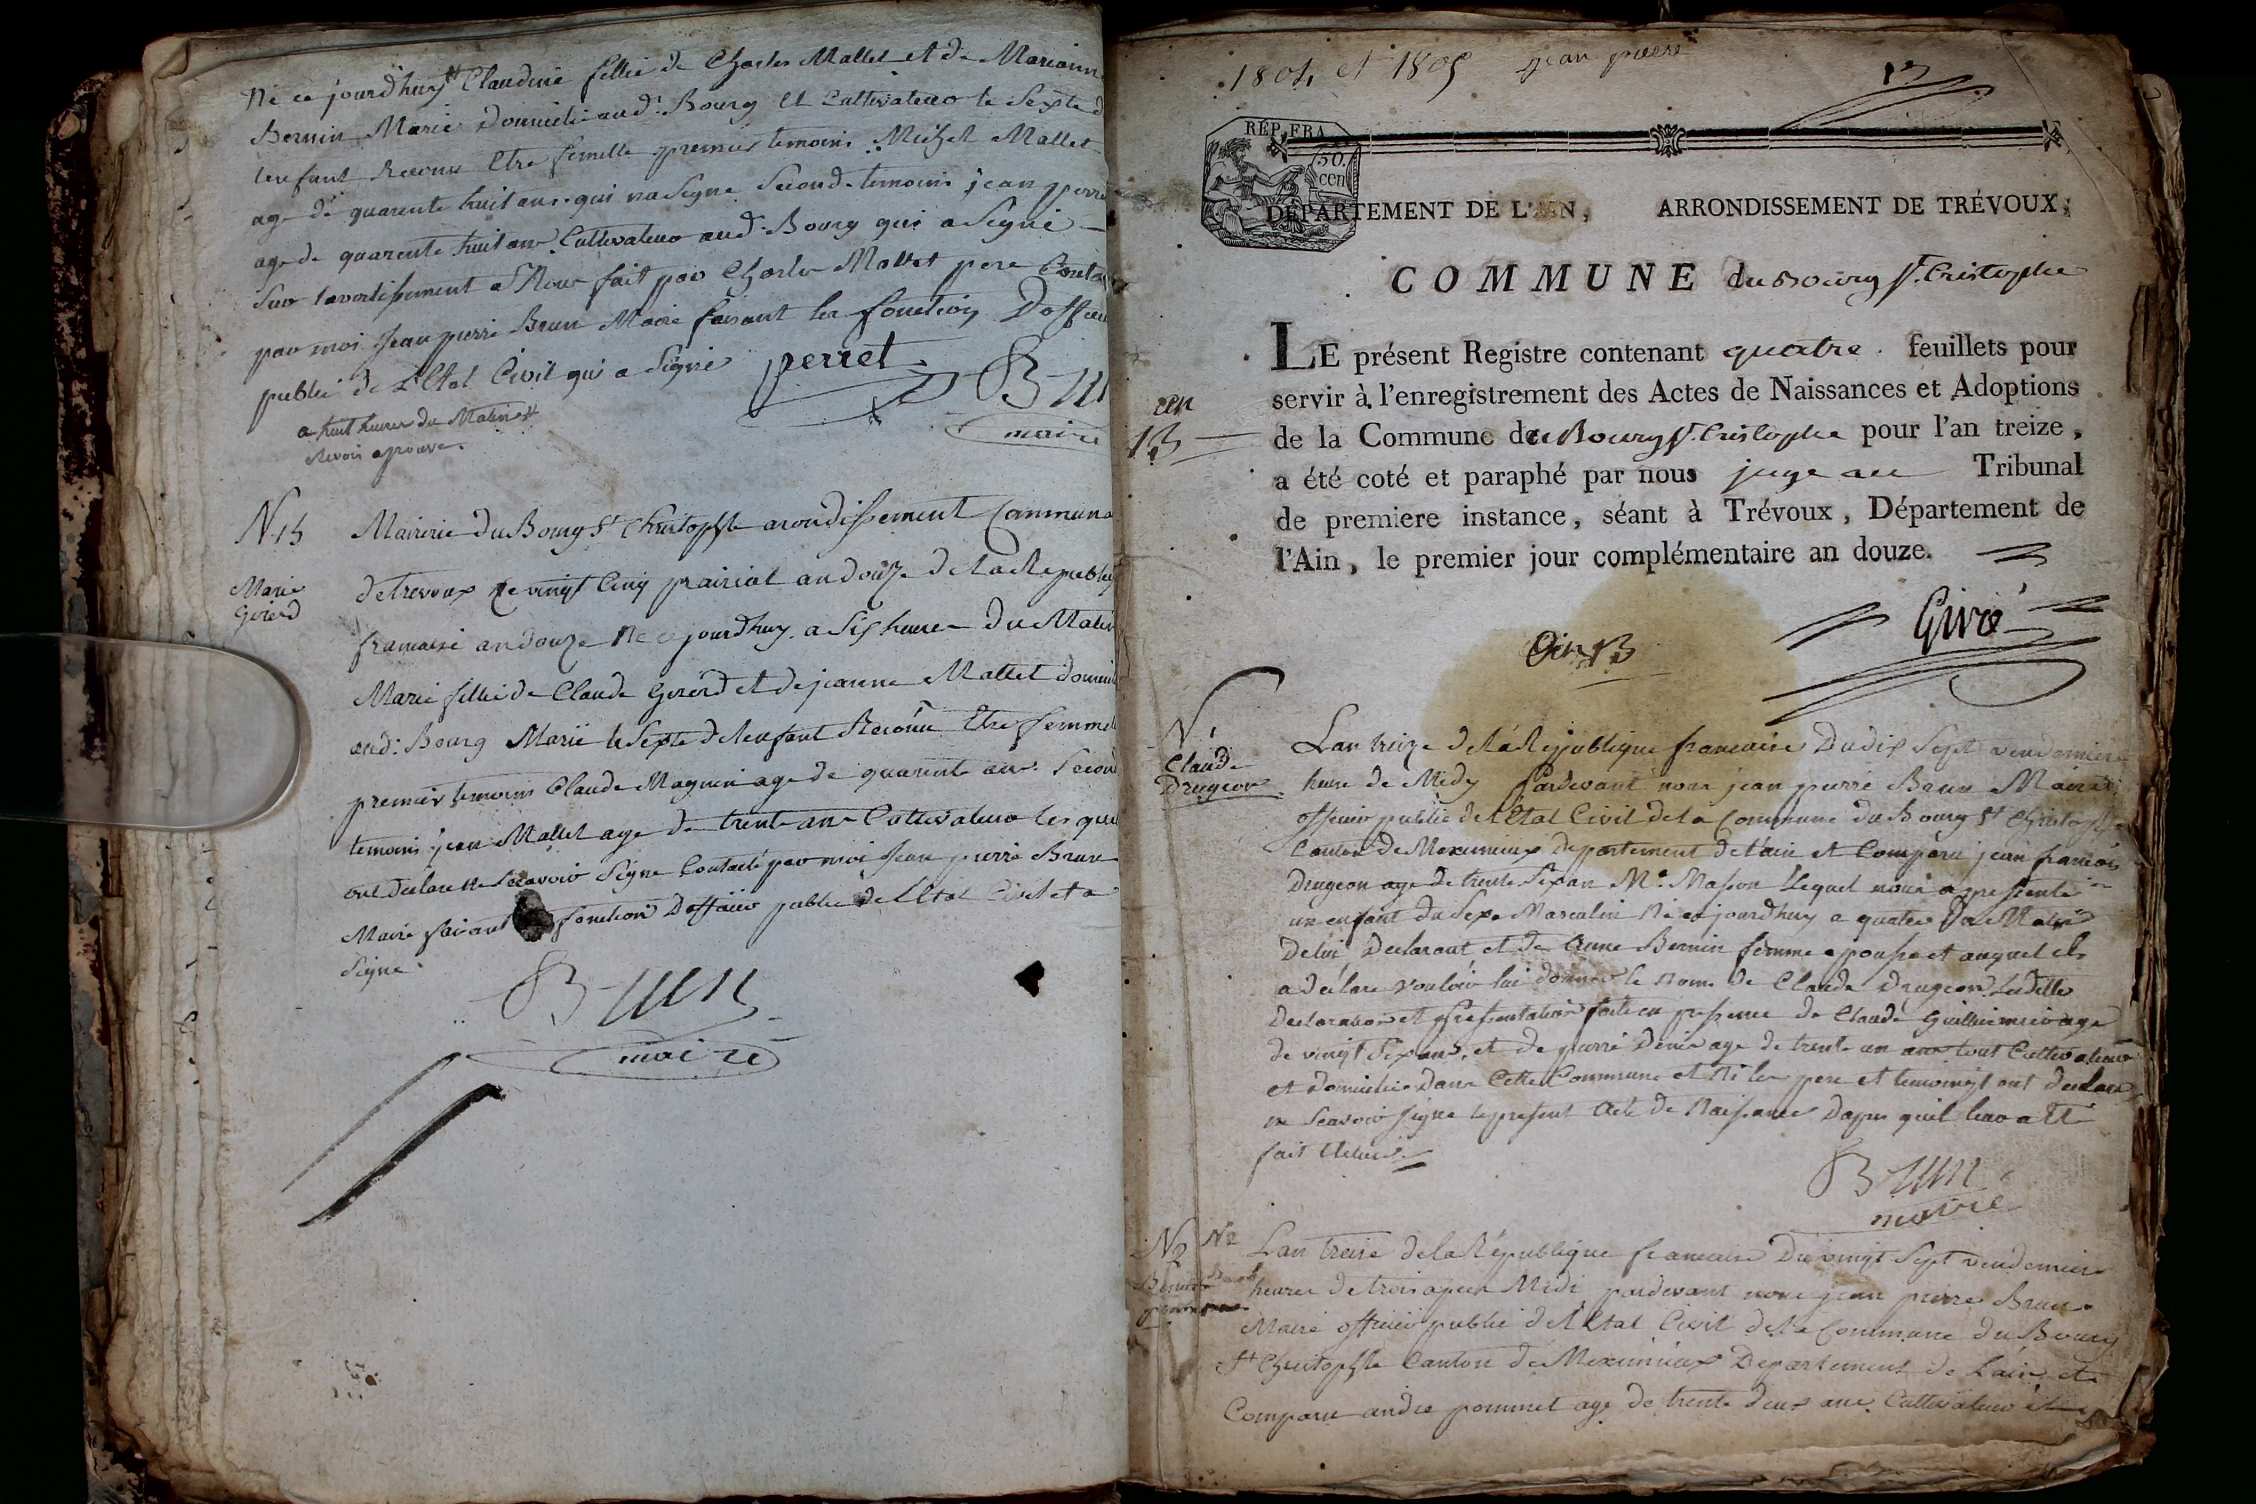 Né ce jourd'huy # Claudine fillie de Charles Mallet et de Mariann
Bernin Marié Domicilié aud: Bourg et Cultivateur le Sexte d
lenfant Reconu Etre femelle premier temoins Michel Mallet
age de quarente huit ans qui na Signe Second temoins jean perre
age de quarente huit ans Cultivateur aud: Bourg qui a Signé
Sur lavertissement a Nous fait par Charles Mallet pere
par moi Jean pierre Brun Maire faisant les fonction Doffici
public de LEtat Civil qui a Signé
perret
Brun
maire
a huit heures du Matin #
Renvoi aprouve.
N 15
Marie
Girerd
Mairerie du Bourg St Christophle arondissement Communa
de trevoux le vingt Cinq prairial an douze de la Republiq
francaise an douze Né ce jourdhuy a Six heures du Matin
Marie fillie de Claude Girerd et de jeanne Mallet domicili
aud: Bourg Marié le Sexte de lenfant Reconu Etre femmel
premier temoins Claude Magnin age de quarente ans Second
temoins jean Mallet age de trente ans Cultivateur les quel
ont declare ne Scavoir Signe Constaté par moi Jean pierre Brun
Maire faisant fonction Dofficier public de LEtat Civil et a
Signe
Brun
maire
1804 et 1805 jean pierre
13
RÉP. FRA.
50.
cen
DÉPARTEMENT DE L'AIN, ARRONDISSEMENT DE TRÉVOUX,
COMMUNE du Bourg St. Cristophe
LE présent Registre contenant quatre feuillets pour
servir à l'enregistrement des Actes de Naissances et Adoptions
de la Commune du Bourg St. Cristophe pour l'an treize,
a été coté et paraphé par nous juge au Tribunal
de premiere instance, séant à Trévoux, Département de
l'Ain, le premier jour complémentaire an douze.
an
13
Givré
an 13
N 1
Claude
Drugeon
Lan treize de la République francaise Du dix Sept vendemiere
heure de Midy Pardevant nous jean pierre Brun Maire
officier public de lEtat Civil de la Commune du Bourg St Christophle
Canton de Meximieux departement de lain et Comparu jean francois
Drugeon age de trente Six an Me Masson Lequel nous a presenté
un enfant du Sexe Masculin Né ce jourdhuy a quatre du Matin
De lui Declarant et de Anne Bernin femme epouse et auquel il
a declare vouloir lui donner le nom de Claude Drugeon Ladille
Declaration et presentation faite en presence de Claude Guillermin age
de vingt Six ans, et de pierre Denis age de trente un ans tout Cultivateur
et domicilie dans Cette Commune et Ni les pere et temoingt ont declare
ne Scavoir Signe le present Acte de Naissance Dapres quil leur a Eté
fait
Brun
maire
N2
N2
Lan treise de la République francaise Du vingt Sept vendemier
heures de trois apres Midi pardevant nous jean pierre Brun
Maire officier public de lEtat Civil de la Commune du Bourg
St Christophle Canton de Meximieux Departement de Lain et
Comparu andre pommet age de trente deux ans Cultivateur